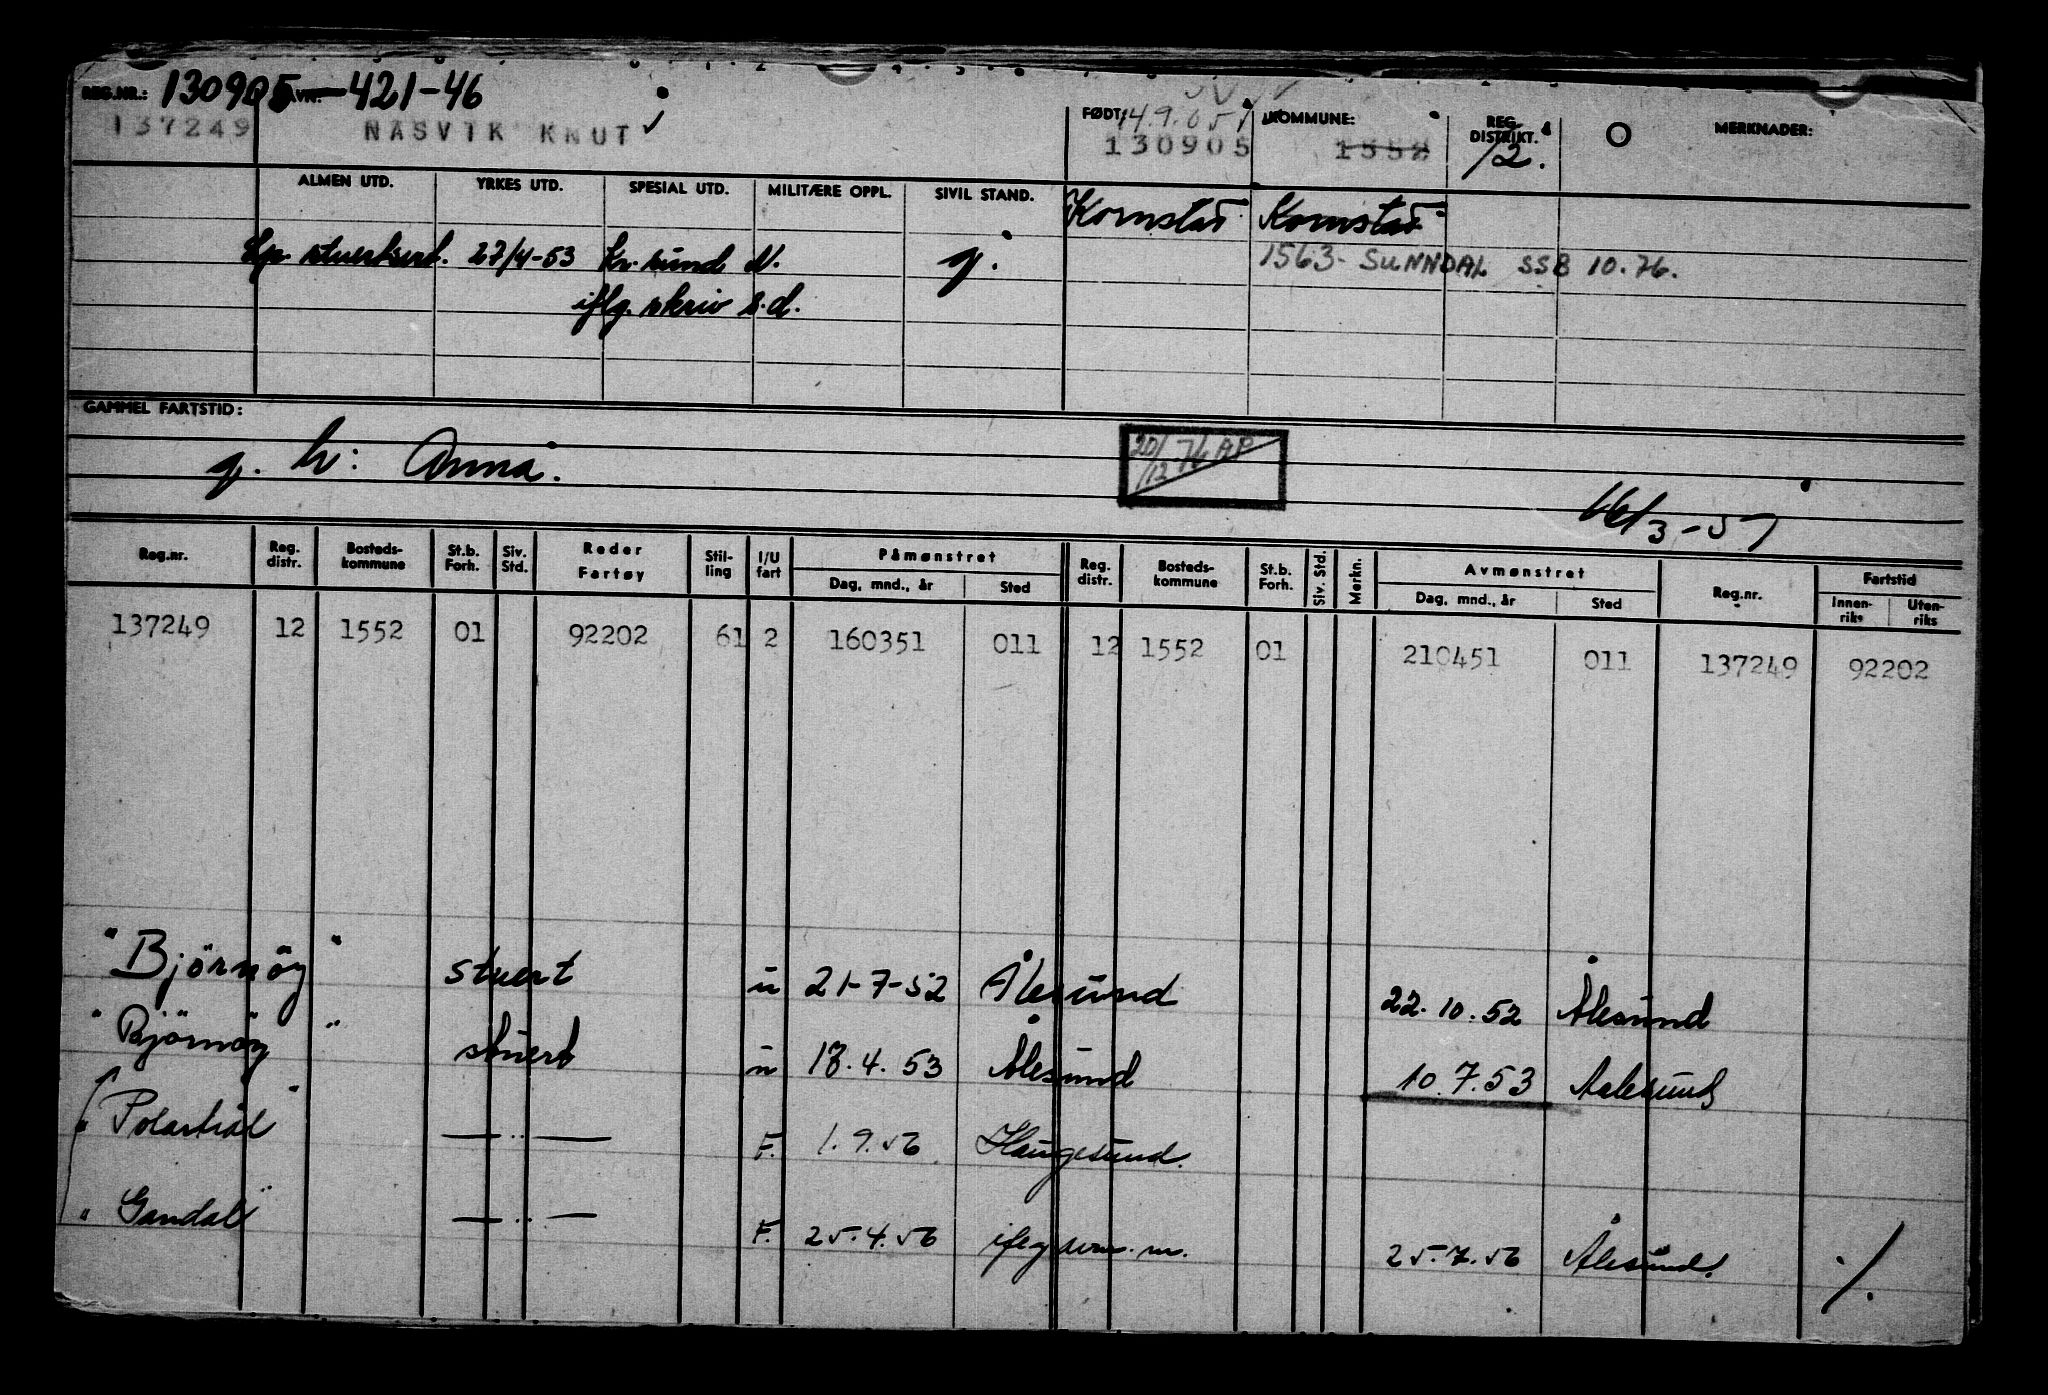 REG.NR.: 130905-421-46
137249 NASVIK KNUT ✓ FØDT 14.9.05 130905 KOMMUNE: 1552 REG. DISTRIKT. 12. MERKNADER:
ALMEN UTD. YRKES UTD. SPESIAL UTD. MILITÆRE OPPL. SIVIL STAND.
Kornstad Kornstad
stuertsert. 27/4-53 Kr. sund N. g. 1563- SUNNDAL SSB 10.76.
iflg. skriv s.d.
GAMMEL FARTSTID:
g. h: Anna. 20/12 76
16/3-57
Reg.nr. Reg. distr. Bosteds- kommune St.b. Forh. Siv. Std. Reder Fartøy Stil- ling I/U fart Påmønstret Dag, mnd., år Sted Reg. distr. Bosteds- kommune St.b. Forh. Siv. Std. Merkn. Avmønstret Dag, mnd., år Sted Reg.nr. Fartstid Innen- riks Uten- riks
137249 12 1552 01 92202 61 2 160351 011 12 1552 01 210451 011 137249 92202
"Björnöy" stuert u 21-7-52 Ålesund 22.10.52 Ålesund
"Björnöy" stuert u 18.4.53 Ålesund 10.7.53 Aalesund
"Polartrål" — " — F. 1.9.56 Haugesund.
"Gandal" — " — F. 25.4.56 25.7.56 Ålesund. ./.